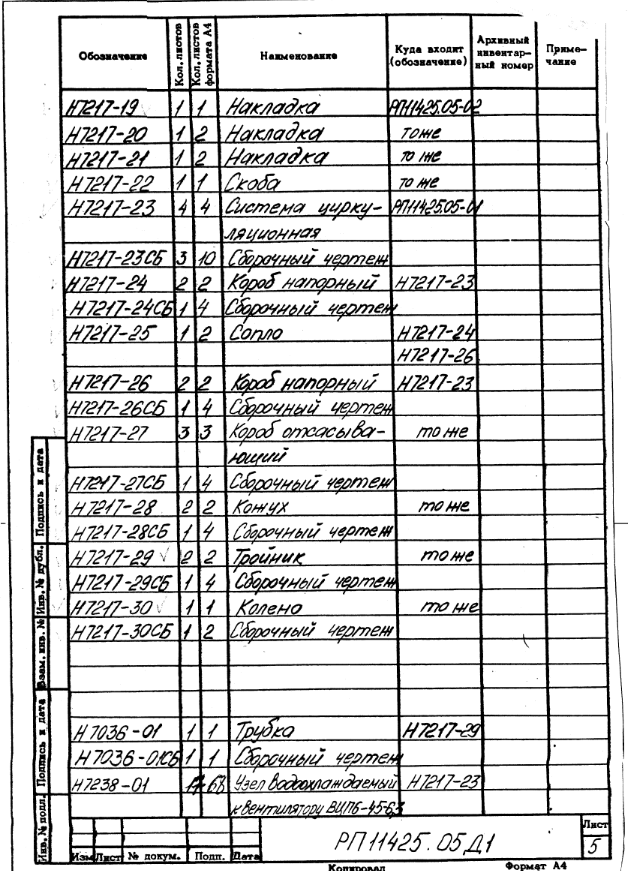 Обозначение Кол. листов Кол. листов формата А4 Наименование Куда входит (обозначение) Архивный инвентар-ный номер Приме-чание
Н7217-19 1 1 Накладка РП11425.05-02
Н7217-20 1 2 Накладка то же
Н7217-21 1 2 Накладка то же
Н7217-22 1 1 Скоба то же
Н7217-23 4 4 Система цирку- РП11425.05-01
ляционная
Н7217-23СБ 3 10 Сборочный чертеж
Н7217-24 2 2 Короб напорный Н7217-23
Н7217-24СБ 1 4 Сборочный чертеж
Н7217-25 1 2 Сопло Н7217-24
Н7217-26
Н7217-26 2 2 Короб напорный Н7217-23
Н7217-26СБ 1 4 Сборочный чертеж
Н7217-27 3 3 Короб отсасыва- то же
ющий
Н7217-27СБ 1 4 Сборочный чертеж
Н7217-28 2 2 Кожух то же
Н7217-28СБ 1 4 Сборочный чертеж
Н7217-29 √ 2 2 Тройник то же
Н7217-29СБ 1 4 Сборочный чертеж
Н7217-30 √ 1 1 Колено то же
Н7217-30СБ 1 2 Сборочный чертеж
Н7036-01 1 1 Трубка Н7217-29
Н7036-01СБ 1 1 Сборочный чертеж
Н7238-01 Узел водоохлаждаемый Н7217-23
к вентилятору ВЦП6-45-6,3
Инв. № подл. Подпись и дата Взам. инв. № Инв. № дубл. Подпись и дата
РП11425.05Д1
Лист
5
Изм Лист № докум. Подп. Дата
Копировал Формат А4